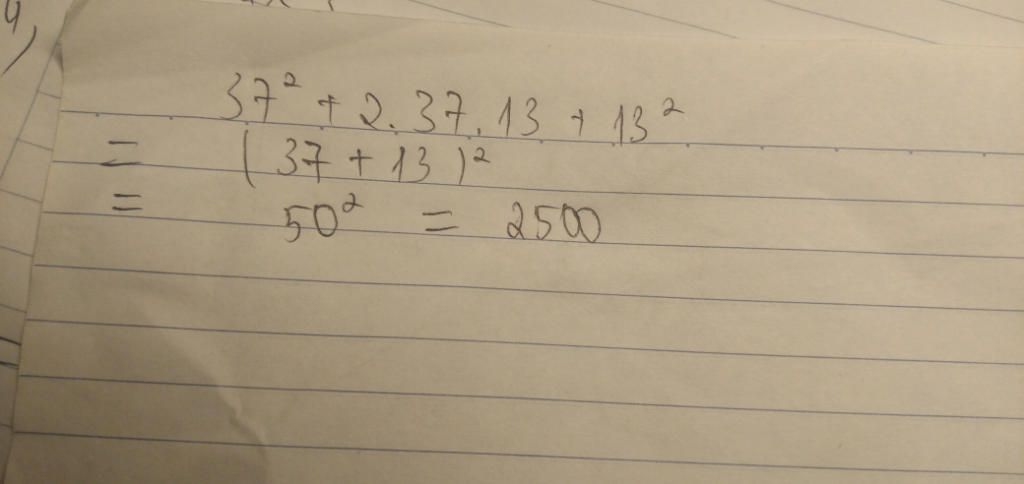 4)
37² + 2.37.13 + 13²
= (37 + 13)²
= 50² = 2500